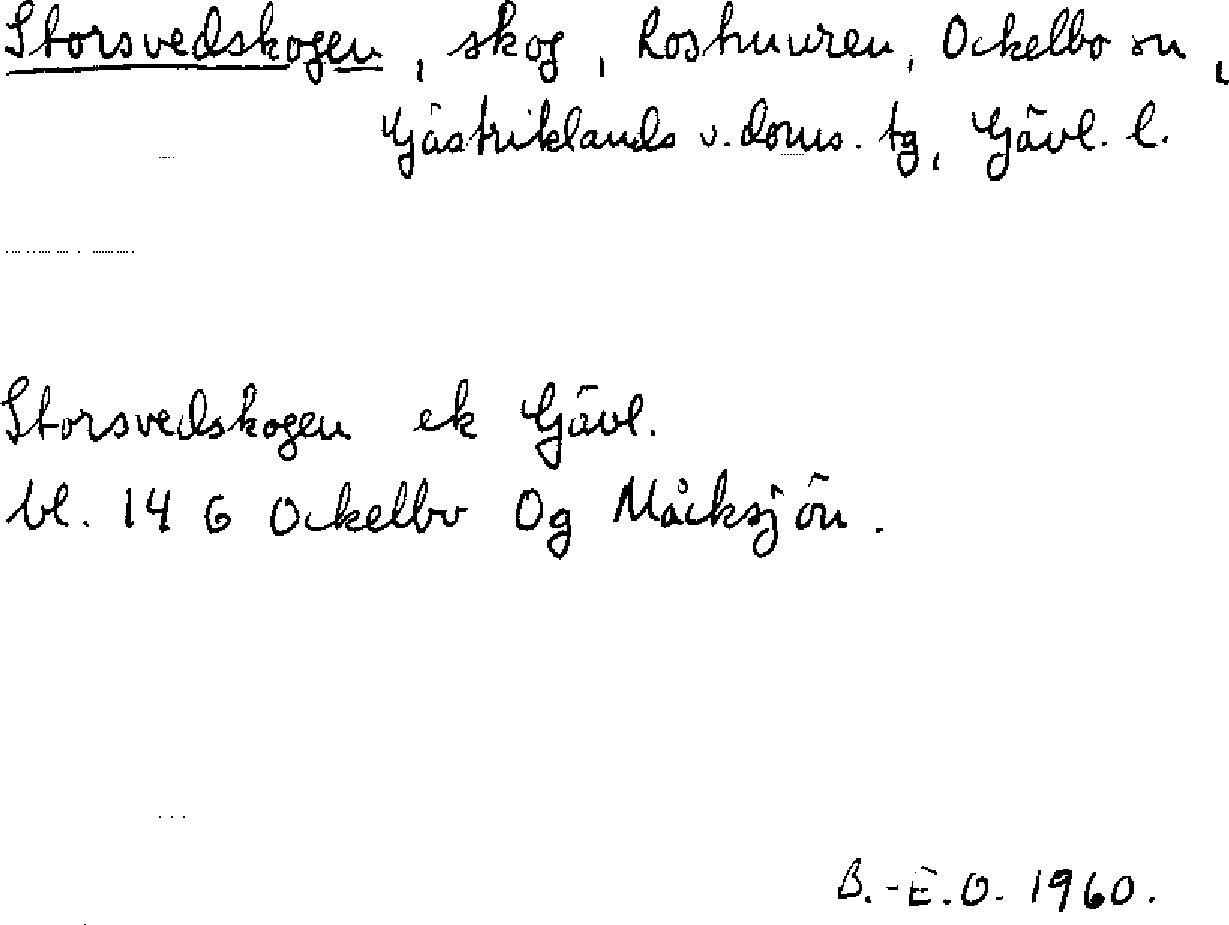 Storsvedskogen, skog, Roshuuren, Ockelbo sn,
Gästriklands v. doms. tg, Gävl. l.
Storsvedskogen ek Gävl.
bl. 14 G Ockelbo 0g Måcksjön.
B.-E.O. 1960.